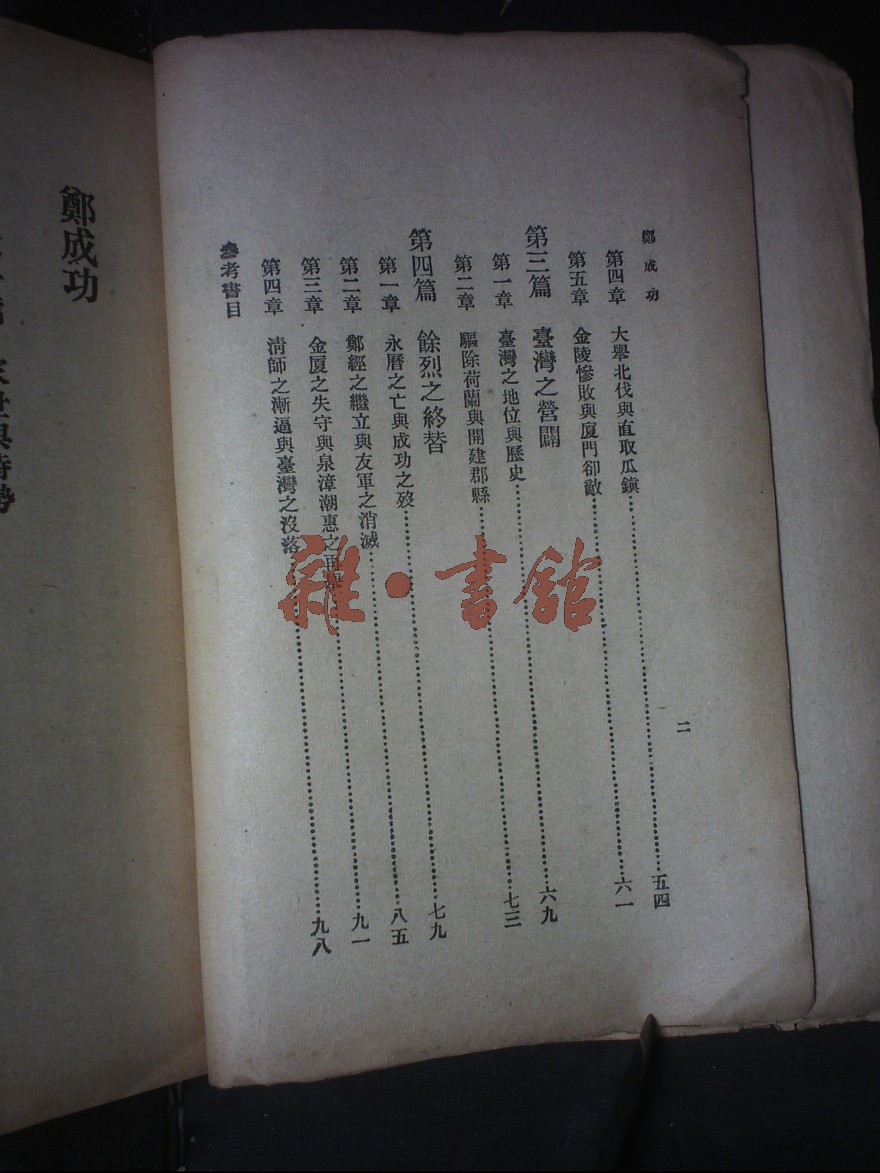 鄭成功
第四章 大舉北伐與直取瓜鎮……五四
第五章 金陵慘敗與厦門卻敵……六一
第三篇 臺灣之營闢
第一章 臺灣之地位與歷史……六九
第二章 驅除荷蘭與開建郡縣……七三
第四篇 餘烈之終替
第一章 永曆之亡與成功之歿……七九
第二章 鄭經之繼立與友軍之消滅……八五
第三章 金厦之失守與泉漳潮惠之再舉……九一
第四章 淸師之漸逼與臺灣之沒落……九八
參考書目
二
鄭成功
雜·書館